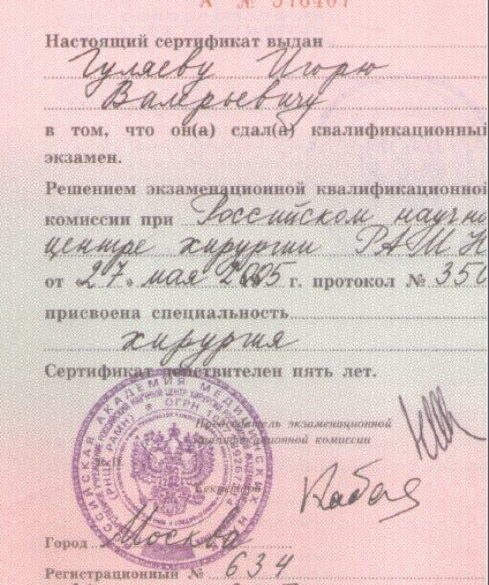 А № 576407
Настоящий сертификат выдан
Гуляеву Игорю
Валерьевичу
в том, что он(а) сдал(а) квалификационный
экзамен.
Решением экзаменационной квалификационной
комиссии при Российском научн
центре хирургии РАМН
от 27. мая 2005 г. протокол № 350
присвоена специальность
хирургия
Сертификат действителен пять лет.
Председатель экзаменационной
квалификационной комиссии
Секретарь
Город Москва
Регистрационный № 634